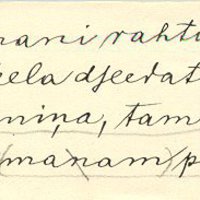 mani rahtu
eela djeedat
niņa, tam
(manam) p